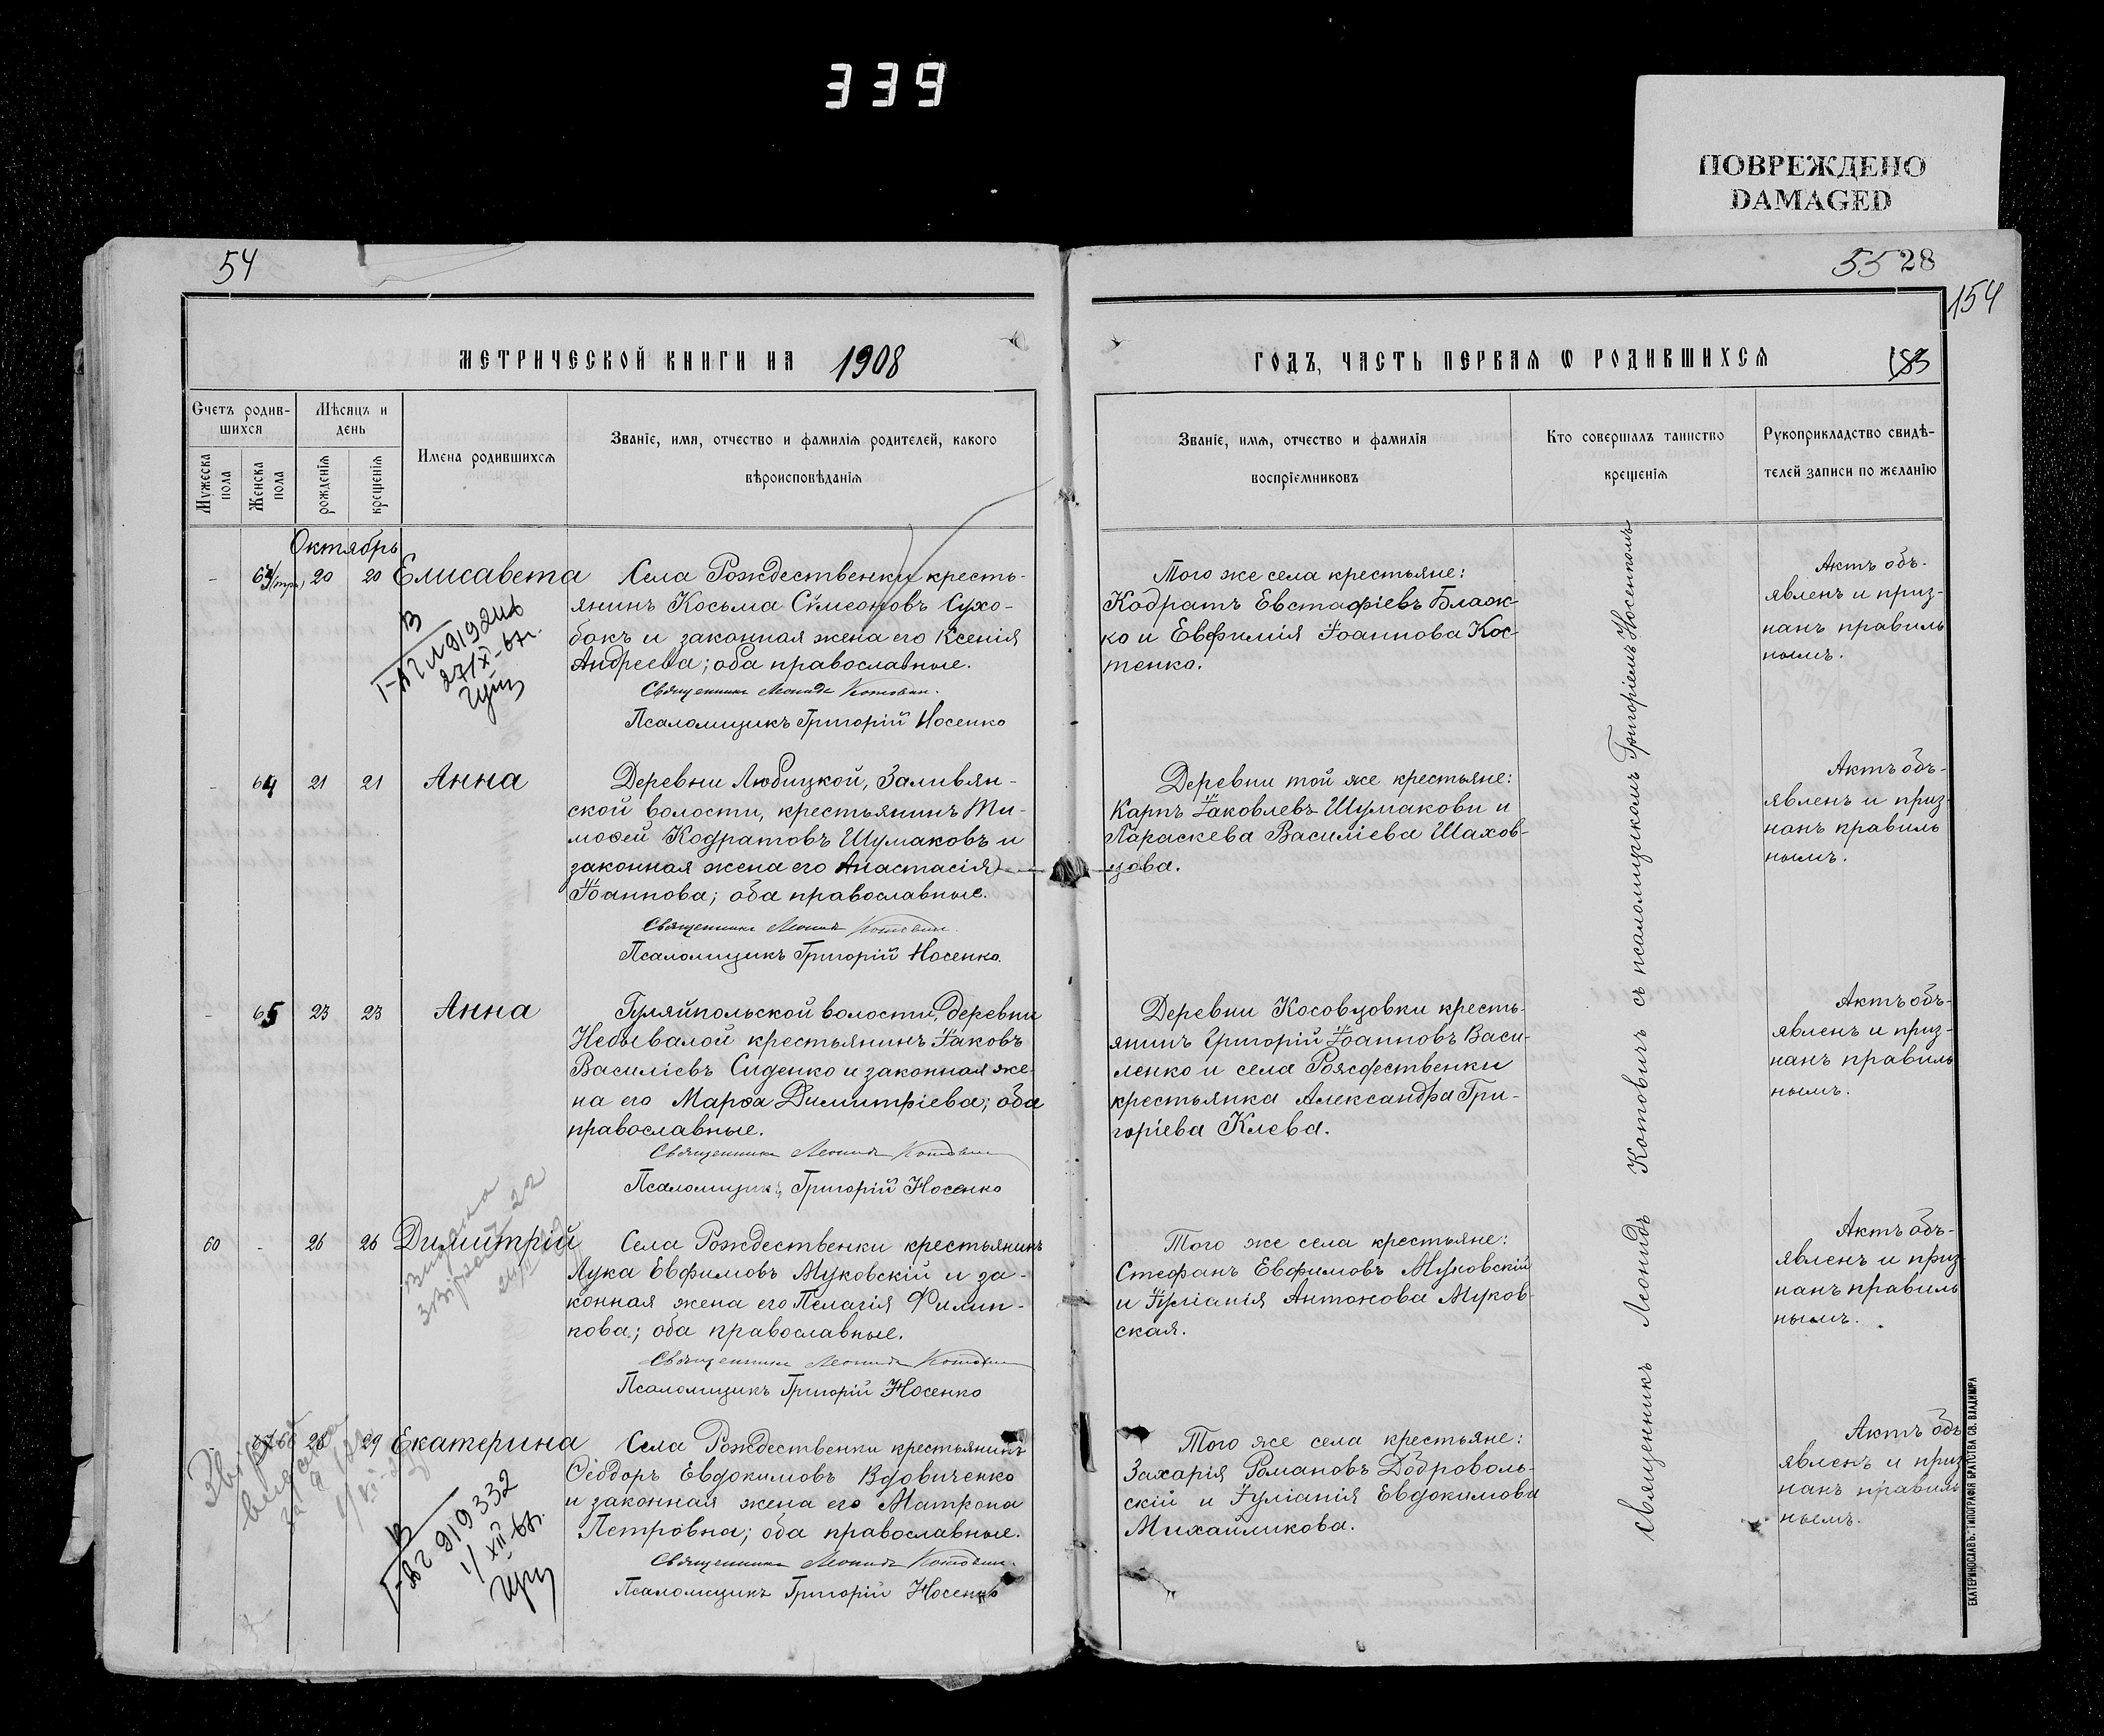 339
ПОВРЕЖДЕНО
DAMAGED
54
МЕТРИЧЕСКОЙ КНИГИ НА 1908
Счетъ родив-
шихся
Мѣсяцъ и
день
Мужеска
пола
Женска
пола
рожденія
крещенія
Имена родившихся
Званіе, имя, отчество и фамилія родителей, какого
вѣроисповѣданія
Октябрь
- 63 20 20 Елисавета
Села Рождественки кресть-
янинъ Косьма Сѵмеоновъ Сухо-
бокъ и законная жена его Ксенія
Андреева; оба православные.
Священникъ Леонидъ Котовичъ.
Псаломщикъ Григорій Носенко
- 64 21 21 Анна
Деревни Любицкой, Заливян-
ской волости, крестьянинъ Ти-
моѳей Кодратовъ Шумаковъ и
законная жена его Анастасія
Іоаннова; оба православные.
Священникъ Леонидъ Котовичъ
Псаломщикъ Григорій Носенко.
- 65 23 23 Анна
Гуляйпольской волости, деревни
Небывалой крестьянинъ Іаковъ
Василіевъ Сиденко и законная же-
на его Марѳа Димитріева; оба
православные.
Священникъ Леонидъ Котовичъ
Псаломщикъ Григорій Носенко
60 - 26 26 Димитрій
Села Рождественки крестьянинъ
Лука Евфимовъ Муковскій и за-
конная жена его Пелагія Филип-
пова; оба православные.
Священникъ Леонидъ Котовичъ
Псаломщикъ Григорій Носенко
28 29 Екатерина
Села Рождественки крестьянинъ
Ѳеодоръ Евдокимовъ Вдовиченко
и законная жена его Матрона
Петровна; оба православные.
Священникъ Леонидъ Котовичъ.
Псаломщикъ Григорій Носенко
919332
55 28
154
ГОДЪ, ЧАСТЬ ПЕРВАЯ Ѡ РОДИВШИХСЯ
183
Званіе, имя, отчество и фамилія
воспріемниковъ
Кто совершалъ таинство
крещенія
Рукоприкладство свидѣ-
телей записи по желанію
Того же села крестьяне:
Кодратъ Евстафіевъ Блаж-
ко и Евфимія Іоаннова Кос-
тенко.
Актъ объ-
явленъ и приз-
нанъ правиль
нымъ.
Деревни той же крестьяне:
Карпъ Іаковлевъ Шумаковъ и
Параскева Василіева Шахов-
цова.
Актъ объ-
явленъ и приз-
нанъ правиль
нымъ.
Деревни Косовцовки кресть-
янинъ Григорій Іоанновъ Васи-
ленко и села Рождественки
крестьянка Александра Гри-
горіева Клева.
Актъ объ-
явленъ и приз-
нанъ правиль
нымъ.
Того же села крестьяне:
Стефанъ Евфимовъ Муковскій
и Іуліанія Антонова Муков-
ская.
Актъ объ-
явленъ и приз
нанъ правиль
нымъ.
Того же села крестьяне:
Захарія Романовъ Доброволь-
скій и Іуліанія Евдокимова
Михайликова.
Актъ объ
явленъ и приз
нанъ правиль
нымъ.
Священникъ Леонидъ Котовичъ съ псаломщикомъ Григоріемъ Носенкомъ
ЕКАТЕРИНОСЛАВЪ. ТИПОГРАФІЯ БРАТСТВА СВ. ВЛАДИМІРА